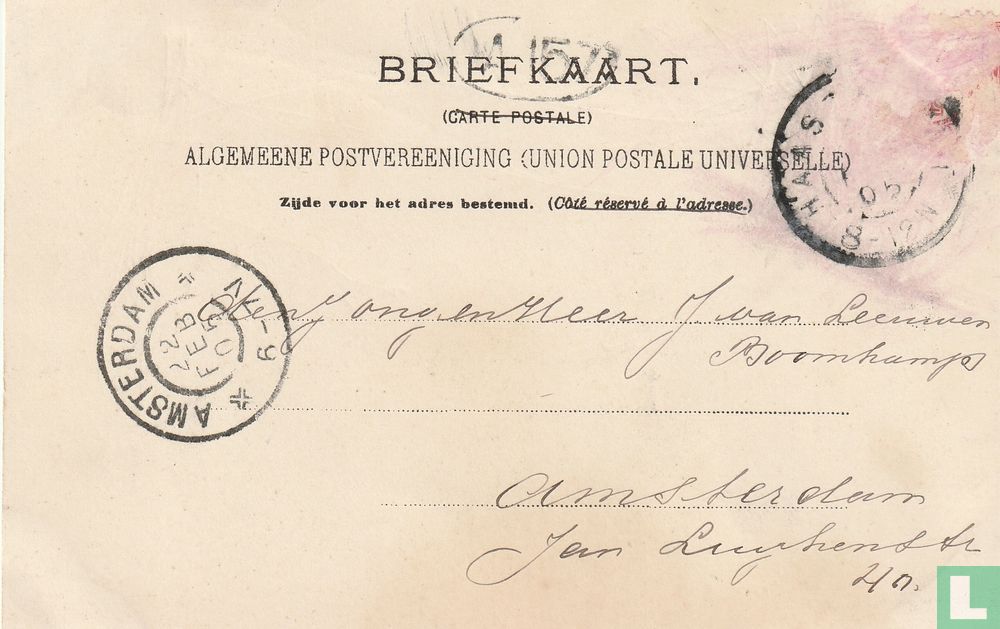 BRIEFKAART.
(CARTE POSTALE)
ALGEMEENE POSTVEREENIGING (UNION POSTALE UNIVERSELLE)
Zijde voor het adres bestemd. (Côté réservé à l'adresse.)
AMSTERDAM
22
FEB
05
den Jongen Heer J van Leeuwen
Boomkamp
Amsterdam
Jan Luykenstr
L